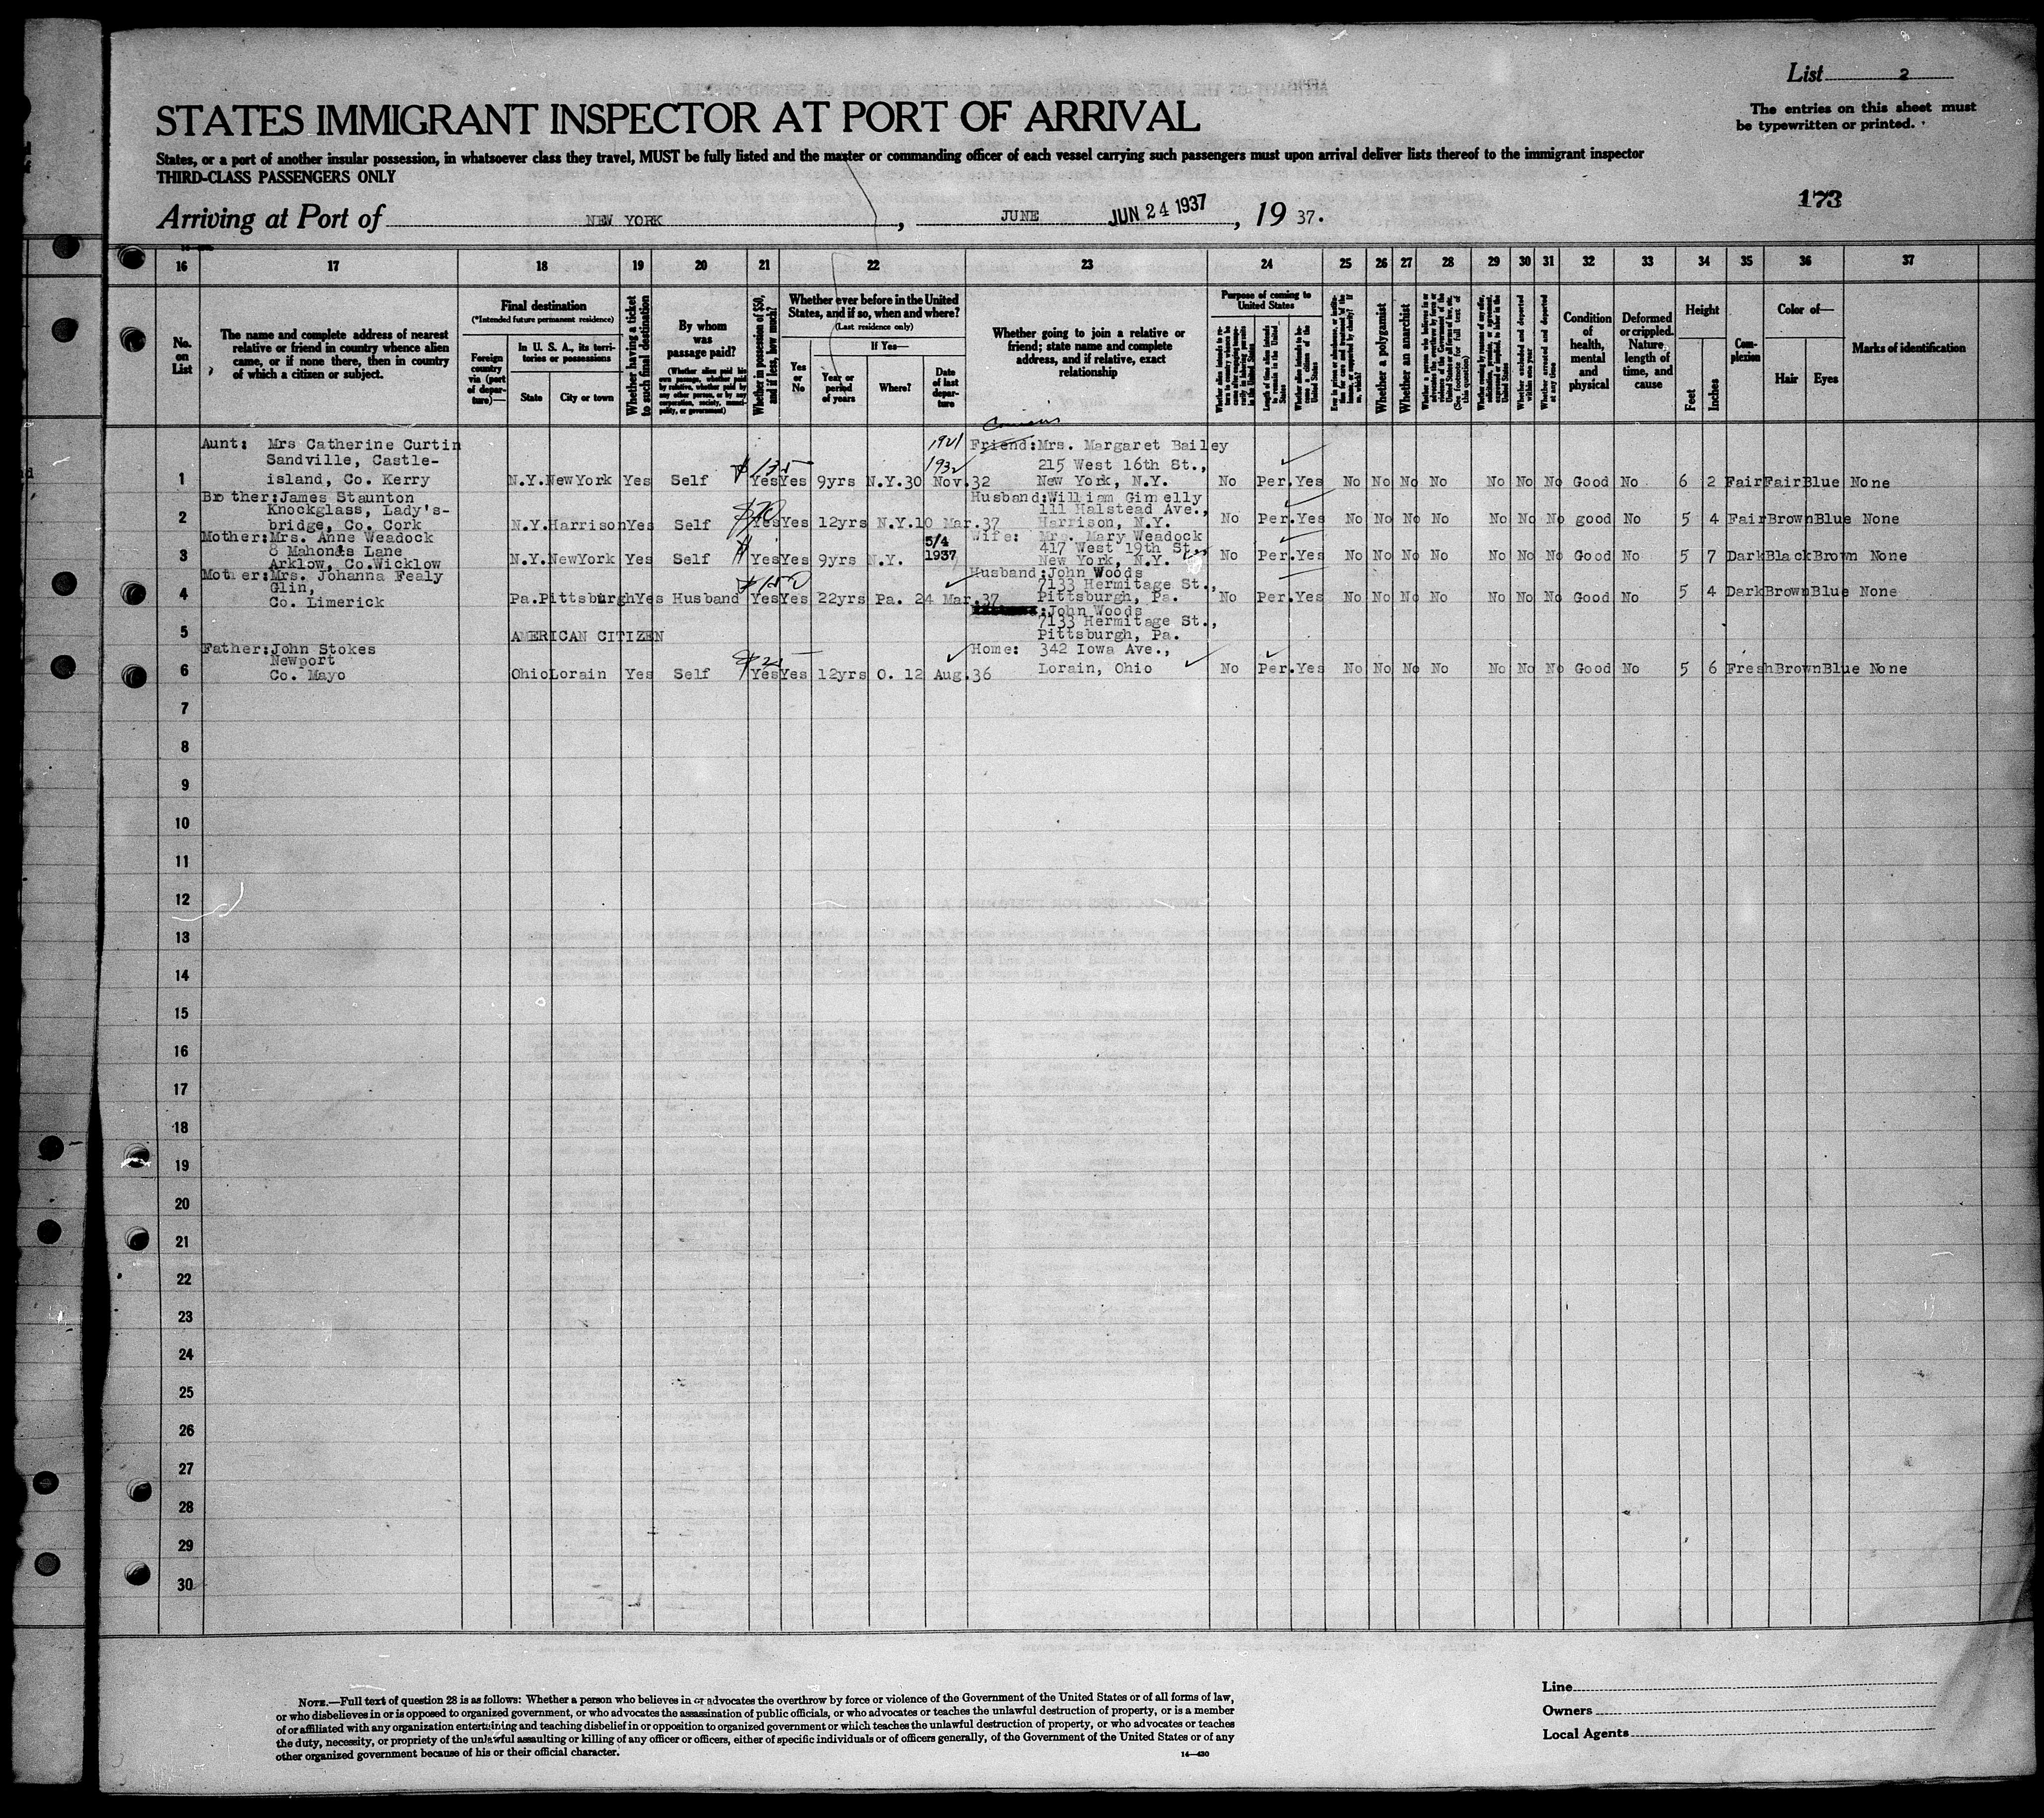 List 2
STATES IMMIGRANT INSPECTOR AT PORT OF ARRIVAL
The entries on this sheet must
be typewritten or printed.
States, or a port of another insular possession, in whatsoever class they travel, MUST be fully listed and the master or commanding officer of each vessel carrying such passengers must upon arrival deliver lists thereof to the immigrant inspector
THIRD-CLASS PASSENGERS ONLY
173
Arriving at Port of NEW YORK, JUNE JUN 24 1937, 19 37.
16 17 18 19 20 21 22 23 24 25 26 27 28 29 30 31 32 33 34 35 36 37
No. on List
The name and complete address of nearest relative or friend in country whence alien came, or if none there, then in country of which a citizen or subject.
Final destination
(*Intended future permanent residence)
Foreign country via (port of departure)—
In U. S. A., its territories or possessions
State
City or town
Whether having a ticket to such final destination
By whom was passage paid?
(Whether alien paid his own passage, whether paid by relative, whether paid by any other person, or by any corporation, society, municipality, or government)
Whether in possession of $50, and if less, how much?
Whether ever before in the United States, and if so, when and where?
(Last residence only)
Yes or No
If Yes—
Year or period of years
Where?
Date of last departure
Whether going to join a relative or friend; state name and complete address, and if relative, exact relationship
Purpose of coming to United States
Whether a polygamist
Whether an anarchist
Condition of health, mental and physical
Deformed or crippled. Nature, length of time, and cause
Height
Feet
Inches
Complexion
Color of—
Hair
Eyes
Marks of identification
Cousin
Aunt: Mrs Catherine Curtin 1921 Friend:Mrs. Margaret Bailey
Sandville, Castle- $135 1932 215 West 16th St.,
1 island, Co. Kerry N.Y. NewYork Yes Self Yes Yes 9yrs N.Y. 30 Nov.32 New York, N.Y. No Per. Yes No No No No No No No Good No 6 2 Fair Fair Blue None
Brother:James Staunton Husband:William Gimelly
Knockglass, Lady's- $70 111 Halstead Ave.,
2 bridge, Co. Cork N.Y. Harrison Yes Self Yes Yes 12yrs N.Y. 10 Mar.37 Harrison, N.Y. No Per. Yes No No No No No No No good No 5 4 Fair Brown Blue None
Mother:Mrs. Anne Weadock 5/4 Wife: Mrs. Mary Weadock
8 Mahon&s Lane 1937 417 West 19th St.,
3 Arklow, Co.Wicklow N.Y. NewYork Yes Self Yes Yes 9yrs N.Y. New York, N.Y. No Per. Yes No No No No No No No Good No 5 7 Dark Black Brown None
Mother:Mrs. Johanna Fealy Husband:John Woods
Glin, $150 7133 Hermitage St.,
4 Co. Limerick Pa. Pittsburgh Yes Husband Yes Yes 22yrs Pa. 24 Mar.37 Pittsburgh, Pa. No Per. Yes No No No No No No No Good No 5 4 Dark Brown Blue None
:John Woods
7133 Hermitage St.,
5 AMERICAN CITIZEN Pittsburgh, Pa.
Father:John Stokes Home: 342 Iowa Ave.,
Newport Lorain, Ohio
6 Co. Mayo Ohio Lorain Yes Self Yes Yes 12yrs O. 12 Aug.36 No Per. Yes No No No No No No No Good No 5 6 Fresh Brown Blue None
7
8
9
10
11
12
13
14
15
16
17
18
19
20
21
22
23
24
25
26
27
28
29
30
NOTE.—Full text of question 28 is as follows: Whether a person who believes in or advocates the overthrow by force or violence of the Government of the United States or of all forms of law,
or who disbelieves in or is opposed to organized government, or who advocates the assassination of public officials, or who advocates or teaches the unlawful destruction of property, or is a member
of or affiliated with any organization entertaining and teaching disbelief in or opposition to organized government or which teaches the unlawful destruction of property, or who advocates or teaches
the duty, necessity, or propriety of the unlawful assaulting or killing of any officer or officers, either of specific individuals or of officers generally, of the Government of the United States or of any
other organized government because of his or their official character.
14—430
Line
Owners
Local Agents